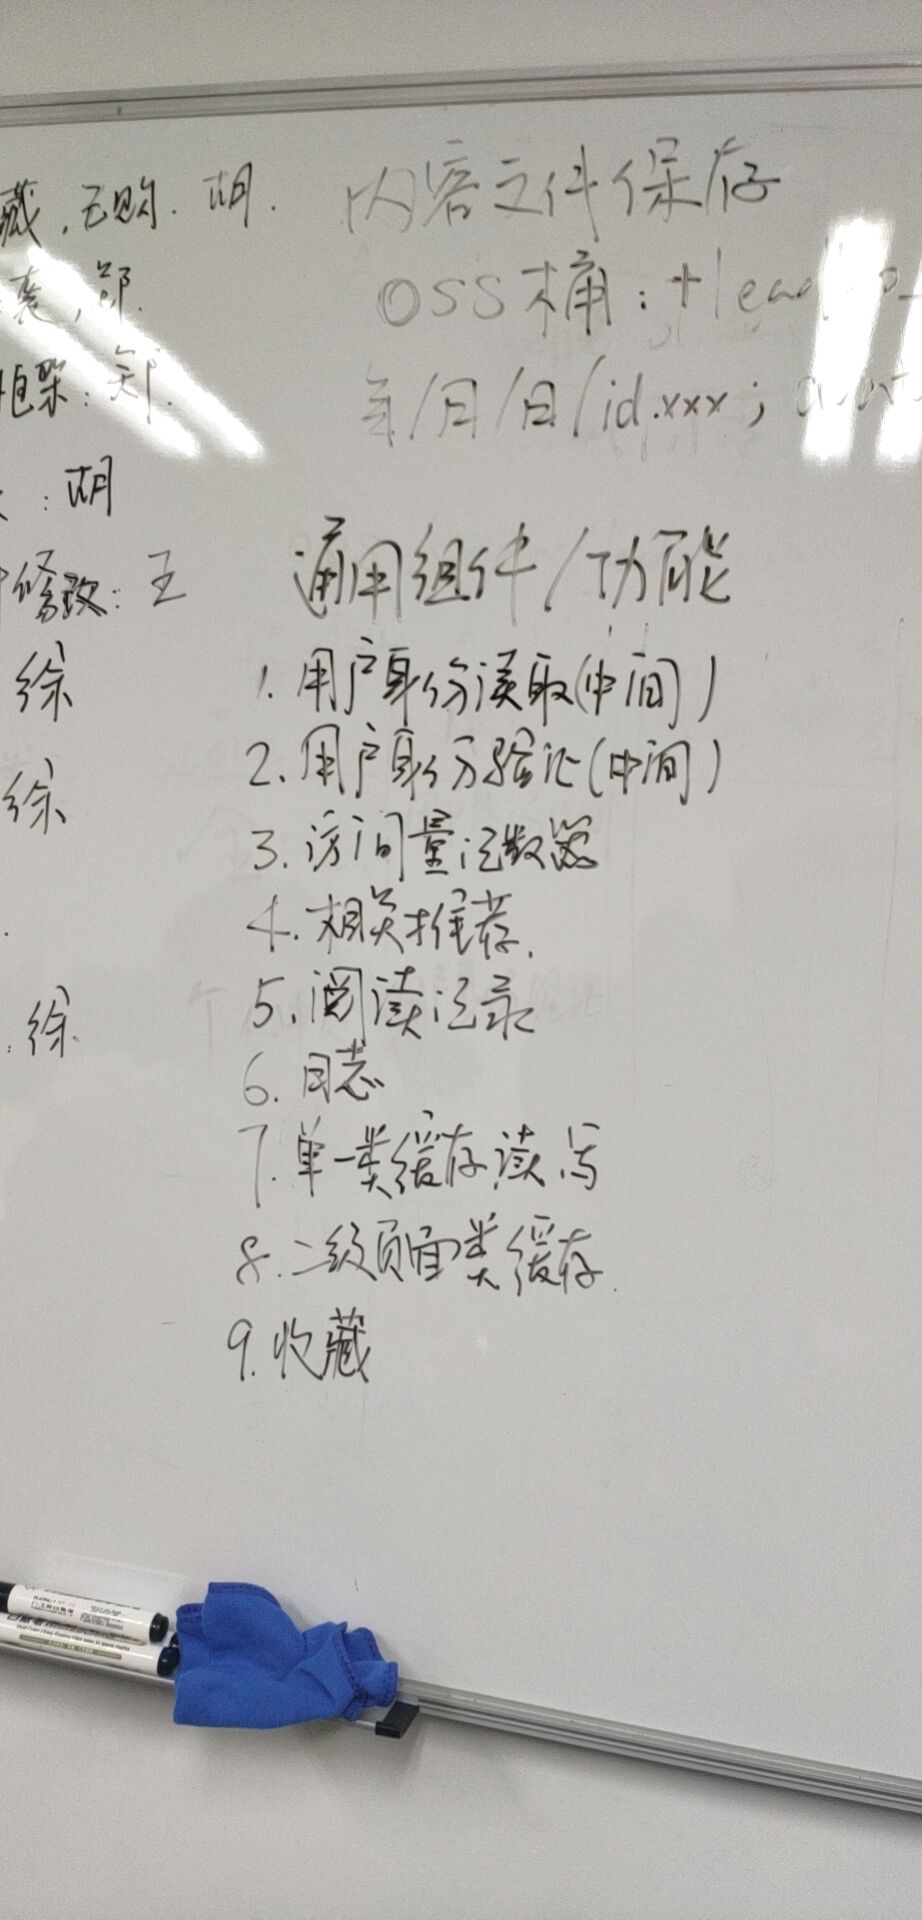 藏,已购.胡.
郑.
框架:郑.
:胡
修改:王
徐
徐
徐.
内容文件保存
OSS桶:
年/月/日/id.xxx;
通用组件/功能
1.用户身份读取(中间)
2.用户身份验证(中间)
3.访问量记数器
4.相关推荐.
5.阅读记录
6.日志
7.单一类缓存读写
8.二级页面类缓存.
9.收藏